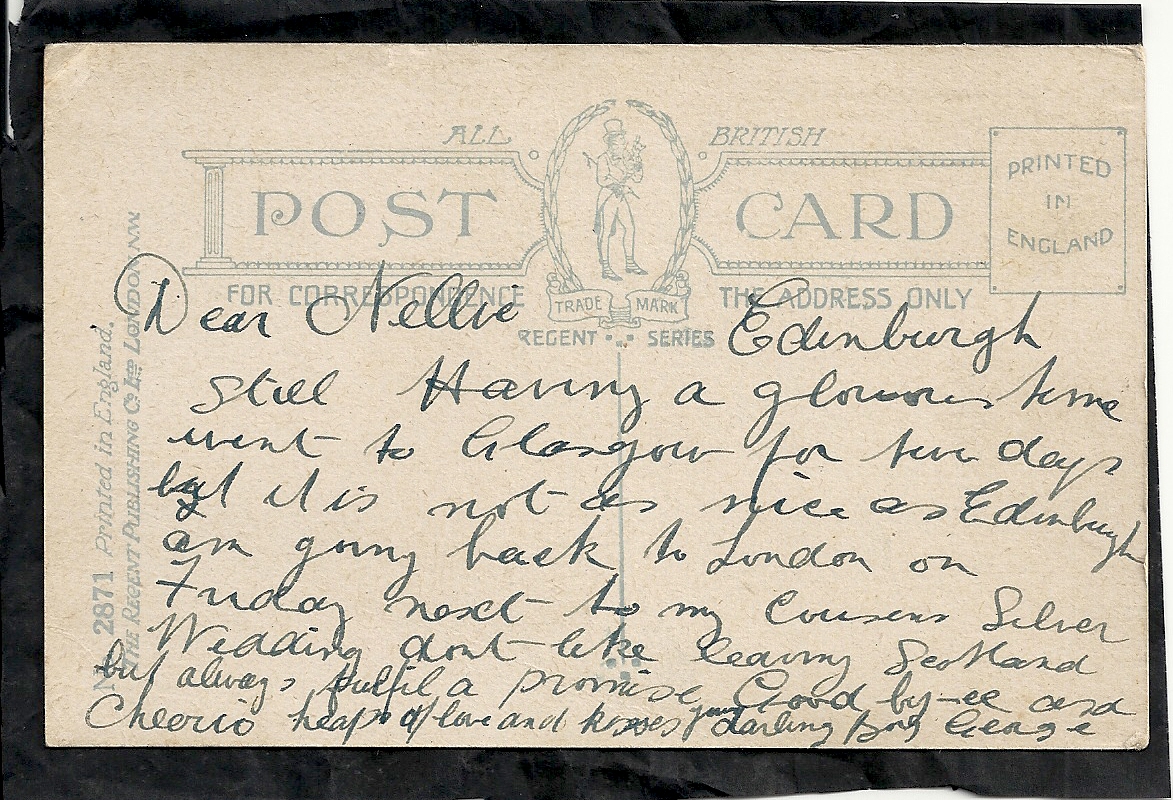 ALL BRITISH
POST CARD
PRINTED
IN
ENGLAND
FOR CORRESPONDENCE
TRADE MARK
THE ADDRESS ONLY
REGENT SERIES
No 2871 Printed in England.
THE REGENT PUBLISHING Co Ltd LONDON. NW
Dear Nellie Edinburgh
Still Having a glorious time
went to Glasgow for two days
but it is not as nice as Edinburgh
am going back to London on
Friday next to my Cousens Silver
Wedding dont like leaving Scotland
but always fulfil a promise Good by-ee and
Cheerio heaps of love and kisses your darling boy George